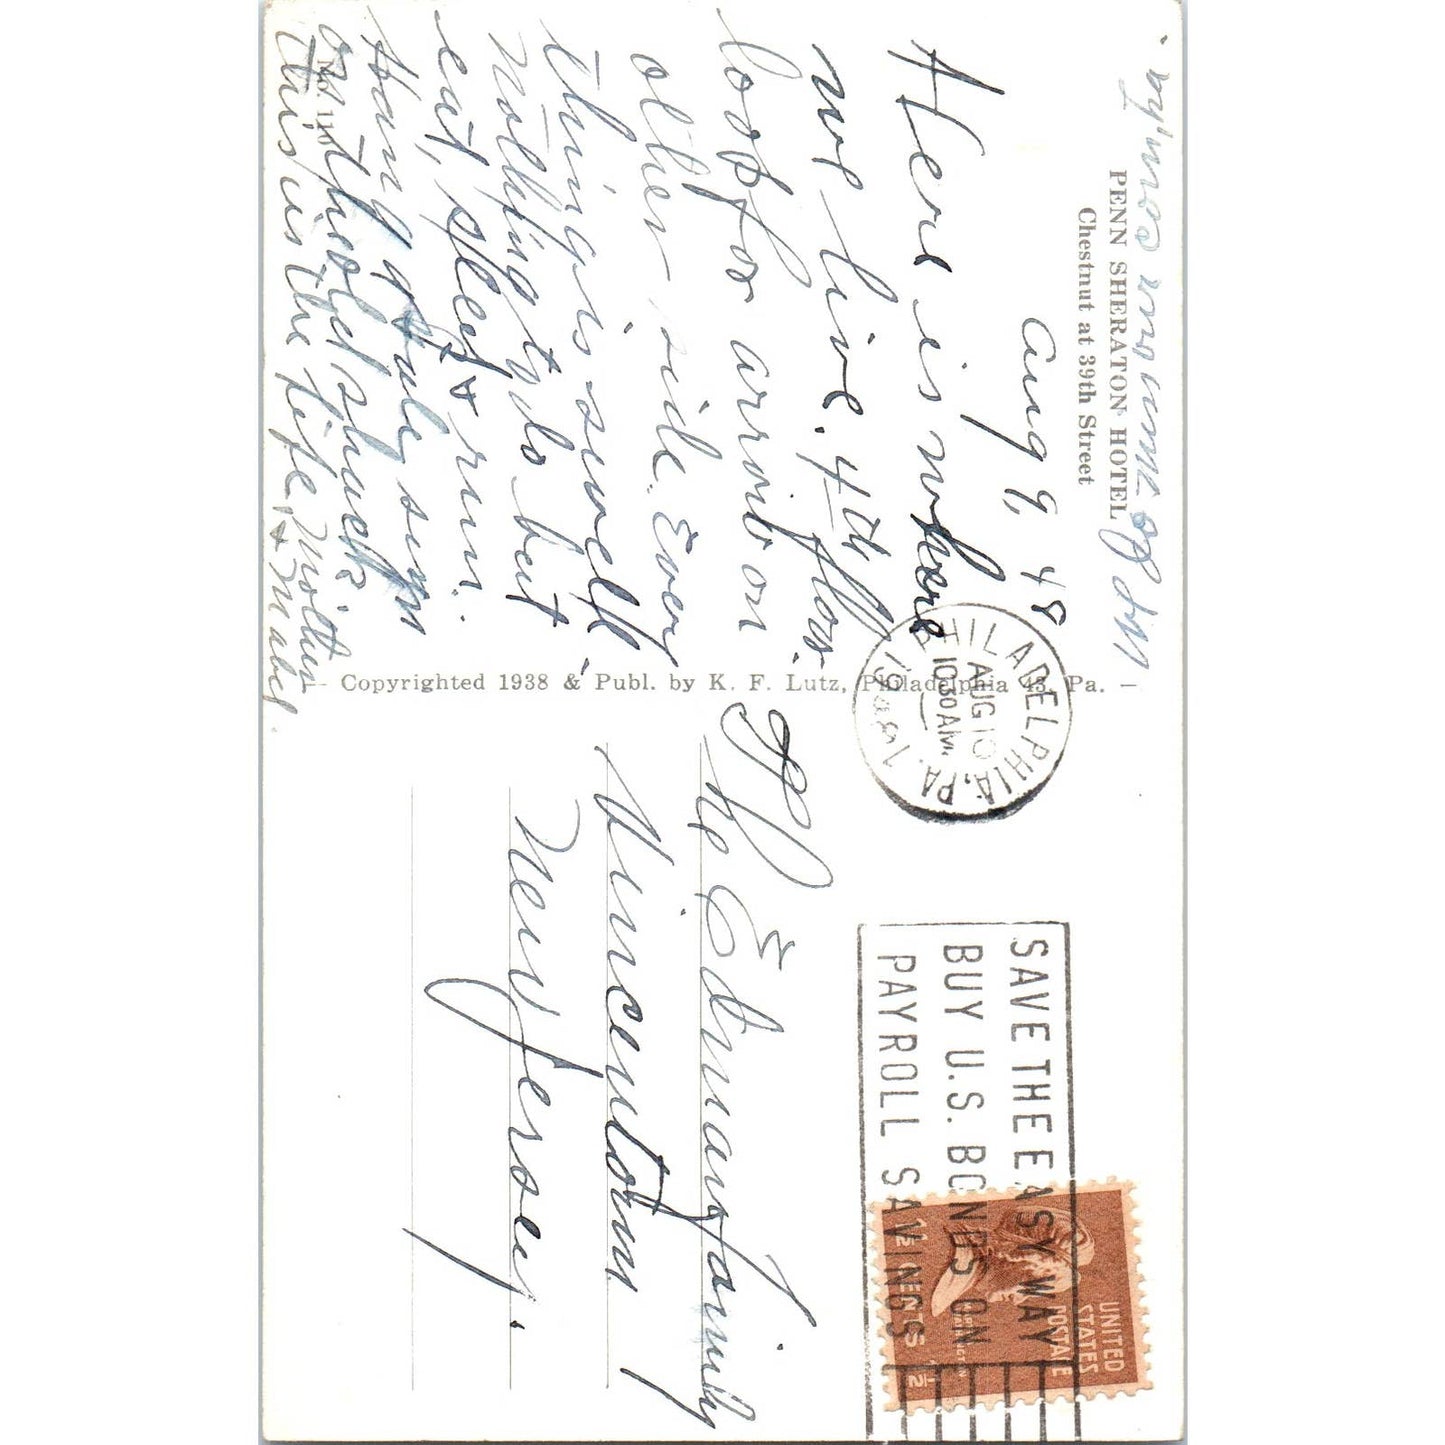 PENN SHERATON HOTEL
Chestnut at 39th Street
Aug 9, 48
Here is where
we live. 4th floor.
look for arrow on
other side. Every
thing is swell,
nothing to do but
eat, sleep & run.
& take sum
on the old shack?
This is the life, Mother
& Mabel
No. 110
— Copyrighted 1938 & Publ. by K. F. Lutz, Philadelphia 43, Pa. —
PHILADELPHIA, PA. 1
AUG 10
10 30 AM
1948
SAVE THE EASY WAY
BUY U.S. BONDS ON
PAYROLL SAVINGS
UNITED
STATES
POSTAGE
1½ CENTS 1½
The Edmans family
Vincentown
New Jersey.